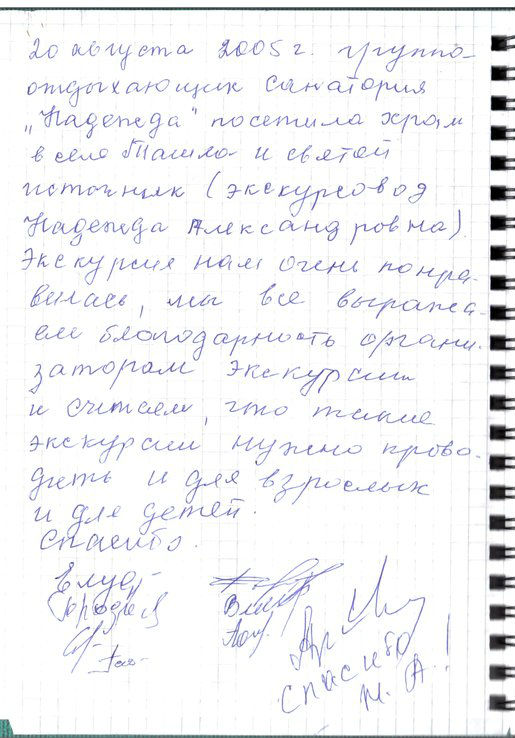 20 августа 2005 г. группа
отдыхающих санатория
„Надежда" посетила храм
в селе Ташла и святой
источник (экскурсовод
Надежда Александровна).
Экскурсия нам очень понра-
вилась, мы все выража-
ем благодарность органи-
заторам экскурсии
и считаем, что такие
экскурсии нужно прово-
дить и для взрослых
и для детей.
Спасибо.
Спасибо
Н. А.!